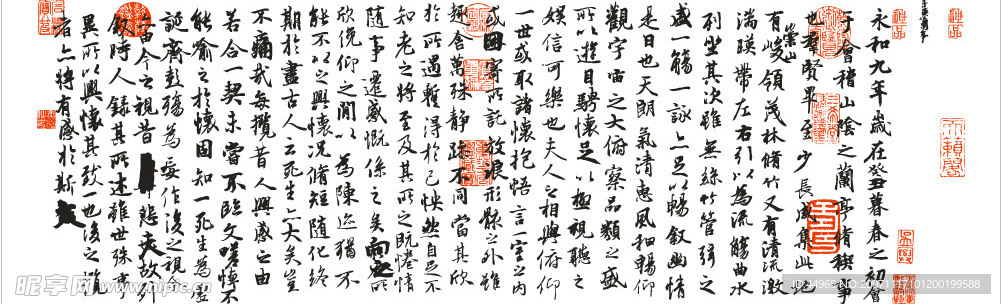 永和九年歲在癸丑暮春之初會
于會稽山陰之蘭亭脩稧事
也羣賢畢至少長咸集此地
有崇山峻領茂林脩竹又有清流激
湍暎帶左右引以為流觴曲水
列坐其次雖無絲竹管弦之
盛一觴一詠亦足以暢敘幽情
是日也天朗氣清惠風和暢仰
觀宇宙之大俯察品類之盛
所以遊目騁懷足以極視聽之
娛信可樂也夫人之相與俯仰
一世或取諸懷抱悟言一室之內
或因寄所託放浪形骸之外雖
趣舍萬殊靜躁不同當其欣
於所遇暫得於己怏然自足不
知老之將至及其所之既惓情
隨事遷感慨係之矣向之所
欣俛仰之閒以為陳迹猶不
能不以之興懷況脩短隨化終
期於盡古人云死生亦大矣豈
不痛哉每攬昔人興感之由
若合一契未嘗不臨文嗟悼不
能喻之於懷固知一死生為虛
誕齊彭殤為妄作後之視
今之視昔悲夫故列
敘時人錄其所述雖世殊事
異所以興懷其致一也後之攬
者亦將有感於斯文
昵享网